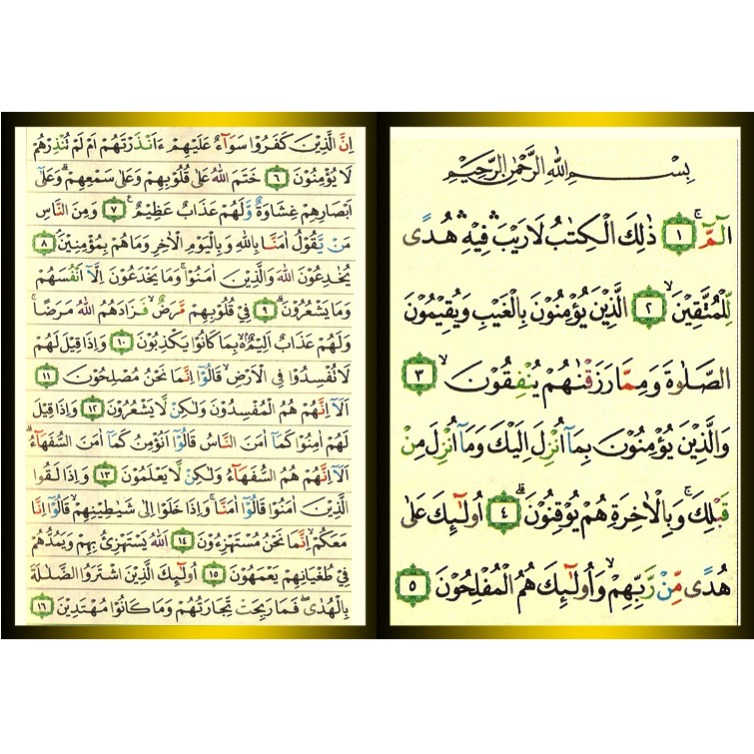 بِسْمِ اللهِ الرَّحْمٰنِ الرَّحِيْمِ
الٓمّٓ ۚ ﴿١﴾ ذٰلِكَ الْكِتٰبُ لَا رَيْبَ ۛ فِيْهِ ۛ هُدًى
لِّلْمُتَّقِيْنَ ۙ ﴿٢﴾ الَّذِيْنَ يُؤْمِنُوْنَ بِالْغَيْبِ وَيُقِيْمُوْنَ
الصَّلٰوةَ وَمِمَّا رَزَقْنٰهُمْ يُنْفِقُوْنَ ۙ ﴿٣﴾
وَالَّذِيْنَ يُؤْمِنُوْنَ بِمَآ اُنْزِلَ اِلَيْكَ وَمَآ اُنْزِلَ مِنْ
قَبْلِكَ ۚ وَبِالْاٰخِرَةِ هُمْ يُوْقِنُوْنَ ۗ ﴿٤﴾ اُولٰٓئِكَ عَلٰى
هُدًى مِّنْ رَّبِّهِمْ ۙ وَاُولٰٓئِكَ هُمُ الْمُفْلِحُوْنَ ﴿٥﴾
اِنَّ الَّذِيْنَ كَفَرُوْا سَوَآءٌ عَلَيْهِمْ ءَاَنْذَرْتَهُمْ اَمْ لَمْ تُنْذِرْهُمْ
لَا يُؤْمِنُوْنَ ﴿٦﴾ خَتَمَ اللهُ عَلٰى قُلُوْبِهِمْ وَعَلٰى سَمْعِهِمْ ۗ وَعَلٰٓى
اَبْصَارِهِمْ غِشَاوَةٌ وَّلَهُمْ عَذَابٌ عَظِيْمٌ ﴿٧﴾ وَمِنَ النَّاسِ
مَنْ يَّقُوْلُ اٰمَنَّا بِاللهِ وَبِالْيَوْمِ الْاٰخِرِ وَمَا هُمْ بِمُؤْمِنِيْنَ ۘ ﴿٨﴾
يُخٰدِعُوْنَ اللهَ وَالَّذِيْنَ اٰمَنُوْا ۚ وَمَا يَخْدَعُوْنَ اِلَّآ اَنْفُسَهُمْ
وَمَا يَشْعُرُوْنَ ۗ ﴿٩﴾ فِيْ قُلُوْبِهِمْ مَّرَضٌ ۙ فَزَادَهُمُ اللهُ مَرَضًا ۚ
وَلَهُمْ عَذَابٌ اَلِيْمٌ ۢ ۙ بِمَا كَانُوْا يَكْذِبُوْنَ ﴿١٠﴾ وَاِذَا قِيْلَ لَهُمْ
لَا تُفْسِدُوْا فِى الْاَرْضِ ۙ قَالُوْٓا اِنَّمَا نَحْنُ مُصْلِحُوْنَ ﴿١١﴾
اَلَآ اِنَّهُمْ هُمُ الْمُفْسِدُوْنَ وَلٰكِنْ لَّا يَشْعُرُوْنَ ﴿١٢﴾ وَاِذَا قِيْلَ
لَهُمْ اٰمِنُوْا كَمَآ اٰمَنَ النَّاسُ قَالُوْٓا اَنُؤْمِنُ كَمَآ اٰمَنَ السُّفَهَآءُ ۗ
اَلَآ اِنَّهُمْ هُمُ السُّفَهَآءُ وَلٰكِنْ لَّا يَعْلَمُوْنَ ﴿١٣﴾ وَاِذَا لَقُوا
الَّذِيْنَ اٰمَنُوْا قَالُوْٓا اٰمَنَّا ۚ وَاِذَا خَلَوْا اِلٰى شَيٰطِيْنِهِمْ ۙ قَالُوْٓا اِنَّا
مَعَكُمْ ۙ اِنَّمَا نَحْنُ مُسْتَهْزِءُوْنَ ﴿١٤﴾ اَللهُ يَسْتَهْزِئُ بِهِمْ وَيَمُدُّهُمْ
فِيْ طُغْيَانِهِمْ يَعْمَهُوْنَ ﴿١٥﴾ اُولٰٓئِكَ الَّذِيْنَ اشْتَرَوُا الضَّلٰلَةَ
بِالْهُدٰى ۖ فَمَا رَبِحَتْ تِّجَارَتُهُمْ وَمَا كَانُوْا مُهْتَدِيْنَ ﴿١٦﴾